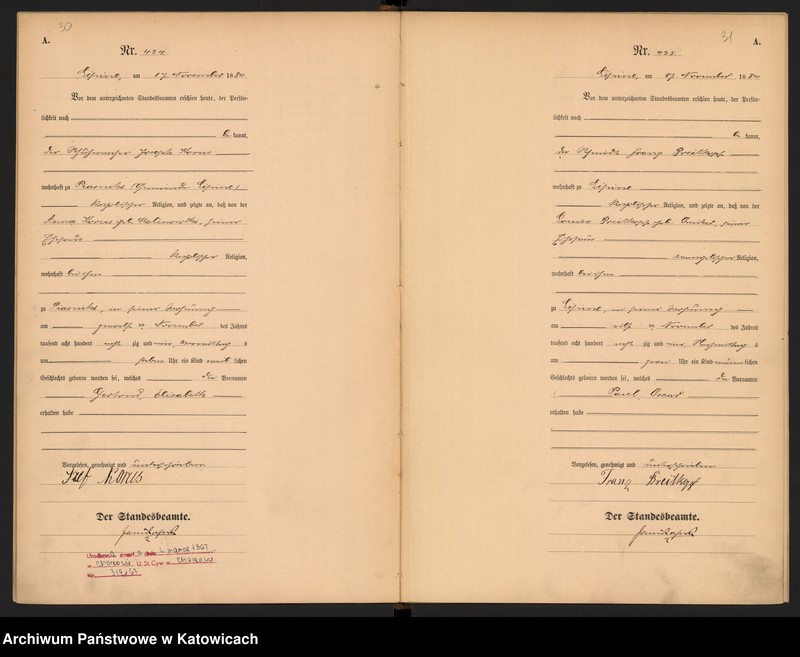 30
A.
Nr. 424.
Lipine, am 17. November 1884
Vor dem unterzeichneten Standesbeamten erschien heute, der Persön-
lichkeit nach
be kannt,
der Joseph Korus
wohnhaft zu Piasniki (Gemeinde Lipine)
katholischer Religion, und zeigte an, daß von der
Anna Korus geb. seiner
Ehefrau
katholischer Religion,
wohnhaft bei ihm
zu Piasniki, in seiner Wohnung
am zwölften November des Jahres
tausend acht hundert acht zig und vier, Vormittags
um sieben Uhr ein Kind weib lichen
Geschlechts geboren worden sei, welches die Vornamen
Gertrud, Elisabeth
erhalten habe
Vorgelesen, genehmigt und unterschrieben
Josef Korus
Der Standesbeamte.
marca 1967
Chorzów U.S.Cyw. Chorzów
Nr.
31
A.
Nr. 425.
Lipine, am 17. November 1884
Vor dem unterzeichneten Standesbeamten erschien heute, der Persön-
lichkeit nach
be kannt,
der Schmidt Franz Breitkopf
wohnhaft zu Lipine
katholischer Religion, und zeigte an, daß von der
Louise Breitkopf geb. seiner
Ehefrau
evangelischer Religion,
wohnhaft bei ihm
zu Lipine, in seiner Wohnung
am elften November des Jahres
tausend acht hundert acht zig und vier, Nachmittags
um zwei Uhr ein Kind männ lichen
Geschlechts geboren worden sei, welches die Vornamen
Paul, Oscar
erhalten habe
Vorgelesen, genehmigt und unterschrieben
Franz Breitkopf
Der Standesbeamte.
Archiwum Państwowe w Katowicach